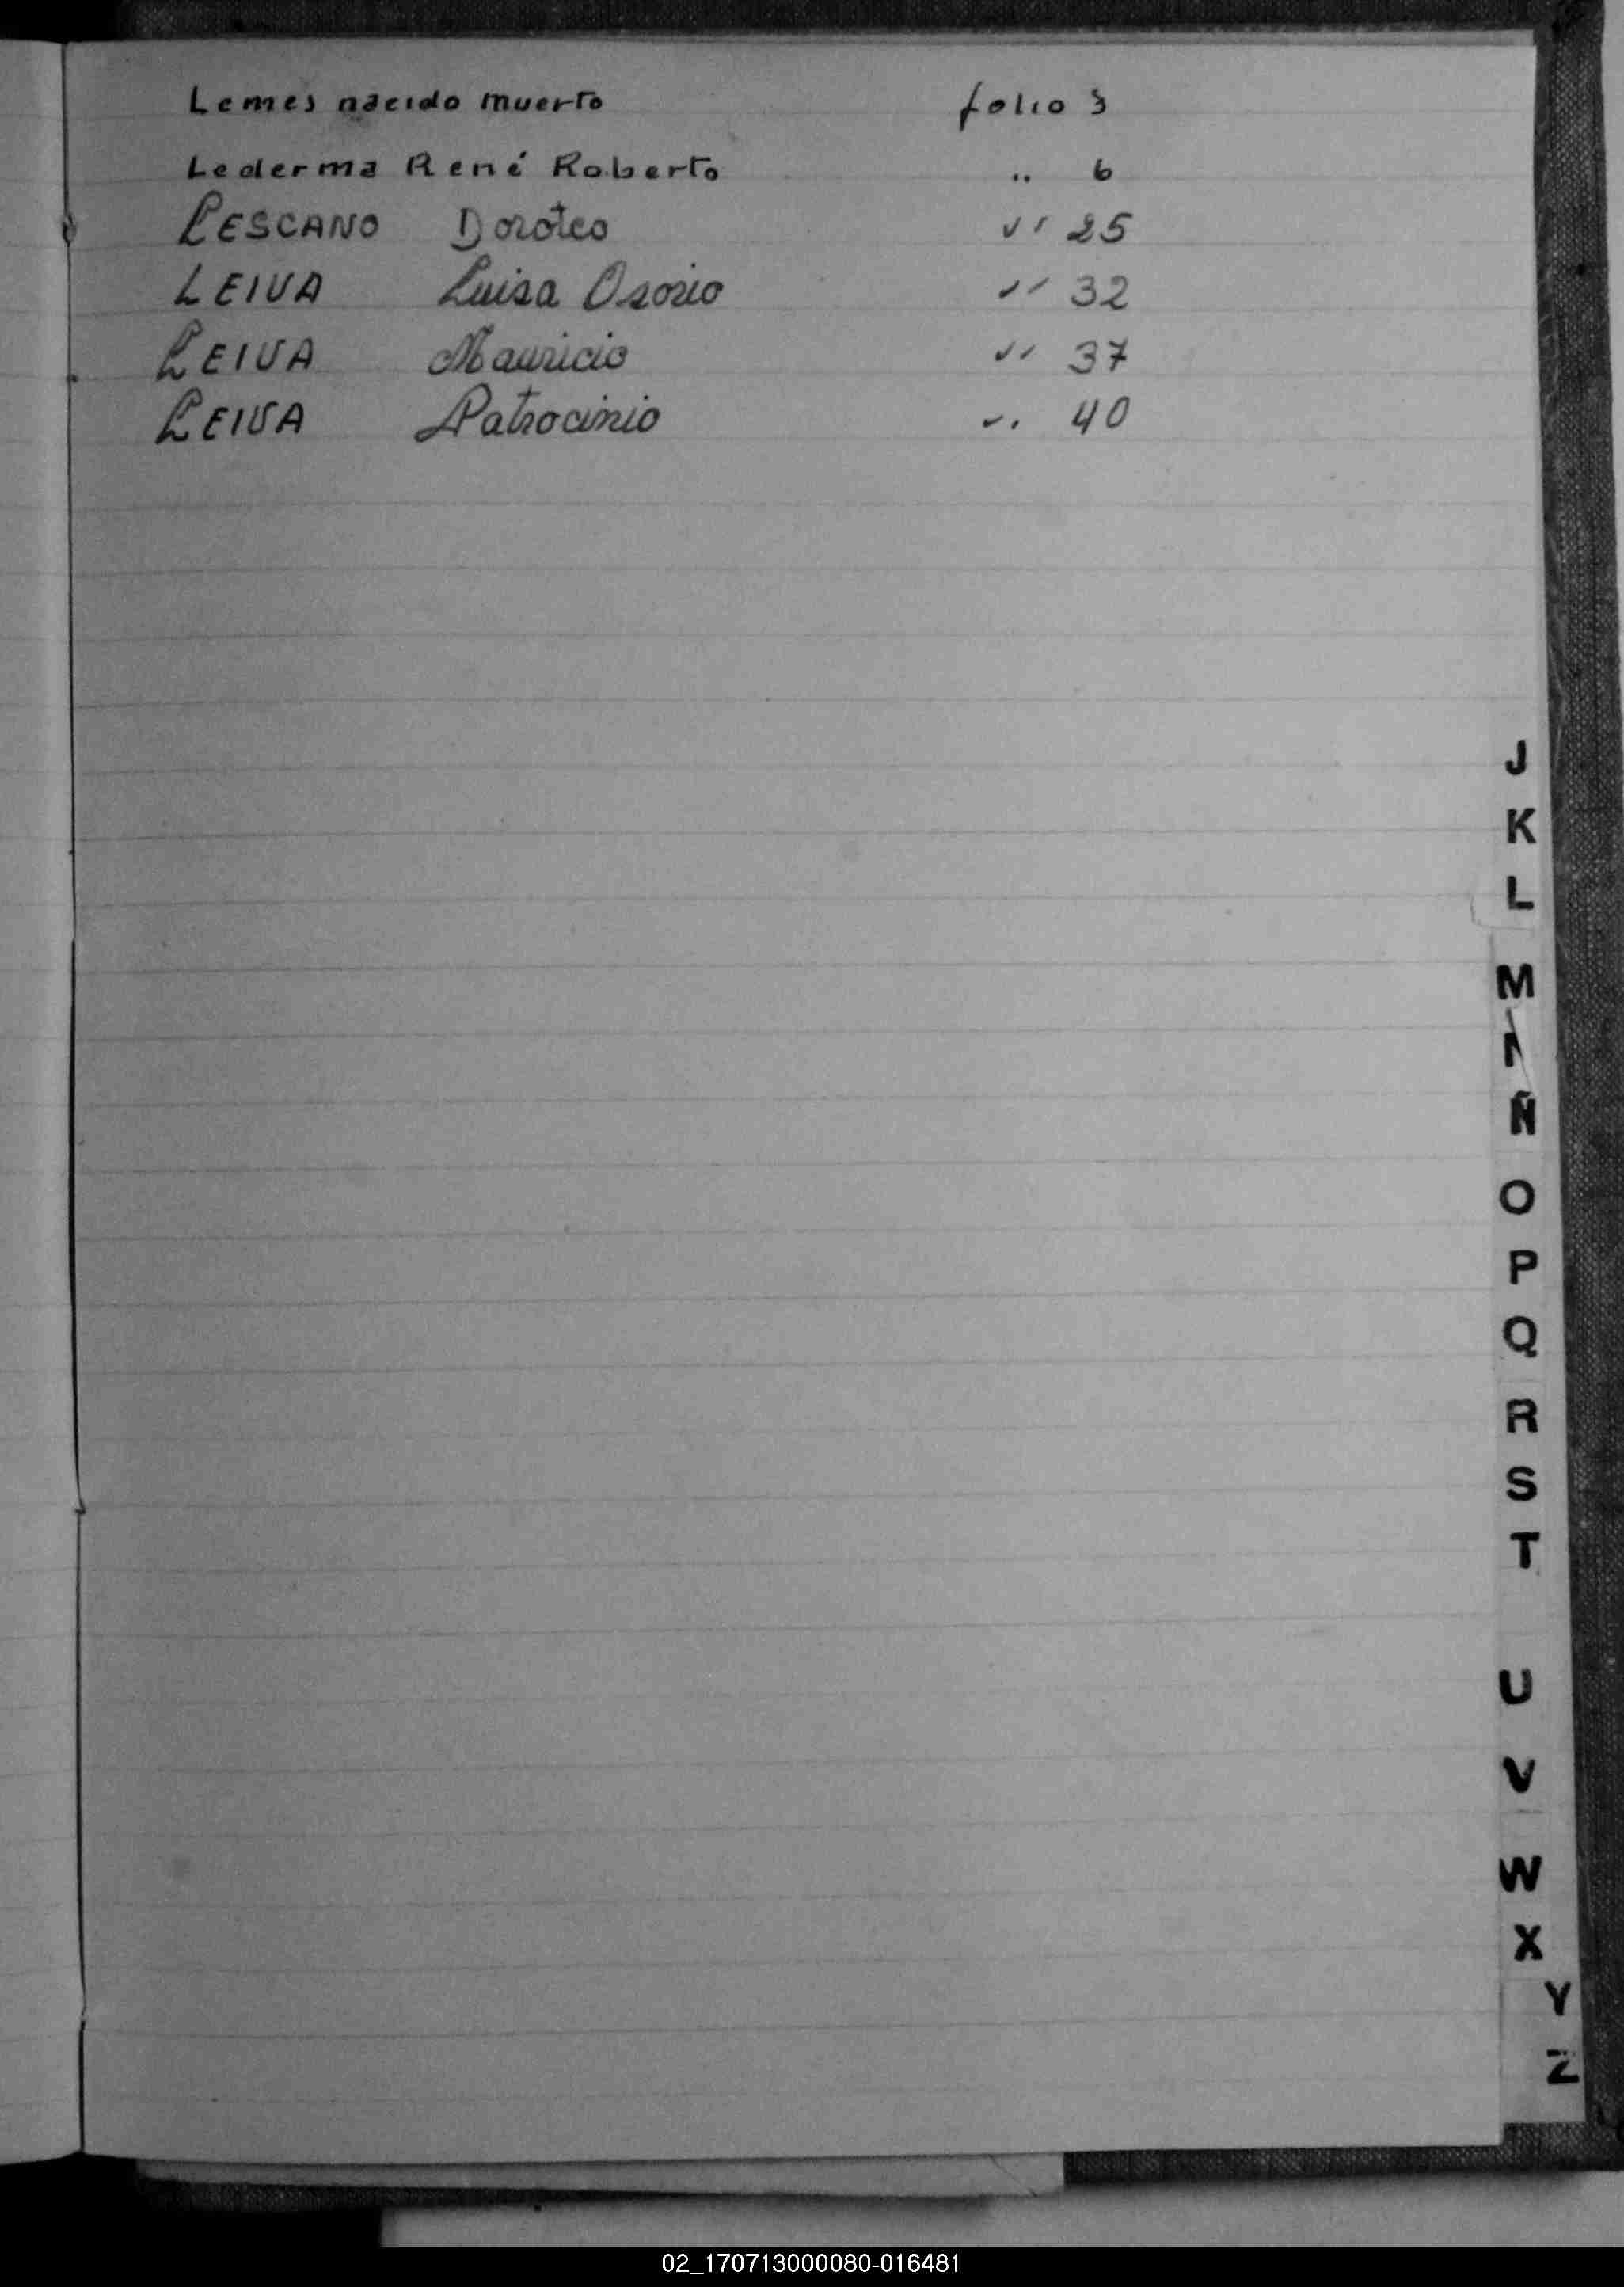 Lemes nacido muerto folio 3
Lederma René Roberto " 6
LESCANO Doroteo " 25
LEIVA Luisa Osorio " 32
LEIVA Mauricio " 37
LEIVA Patrocinio " 40
J
K
L
M
N
Ñ
O
P
Q
R
S
T
U
V
W
X
Y
Z
02_170713000080-016481